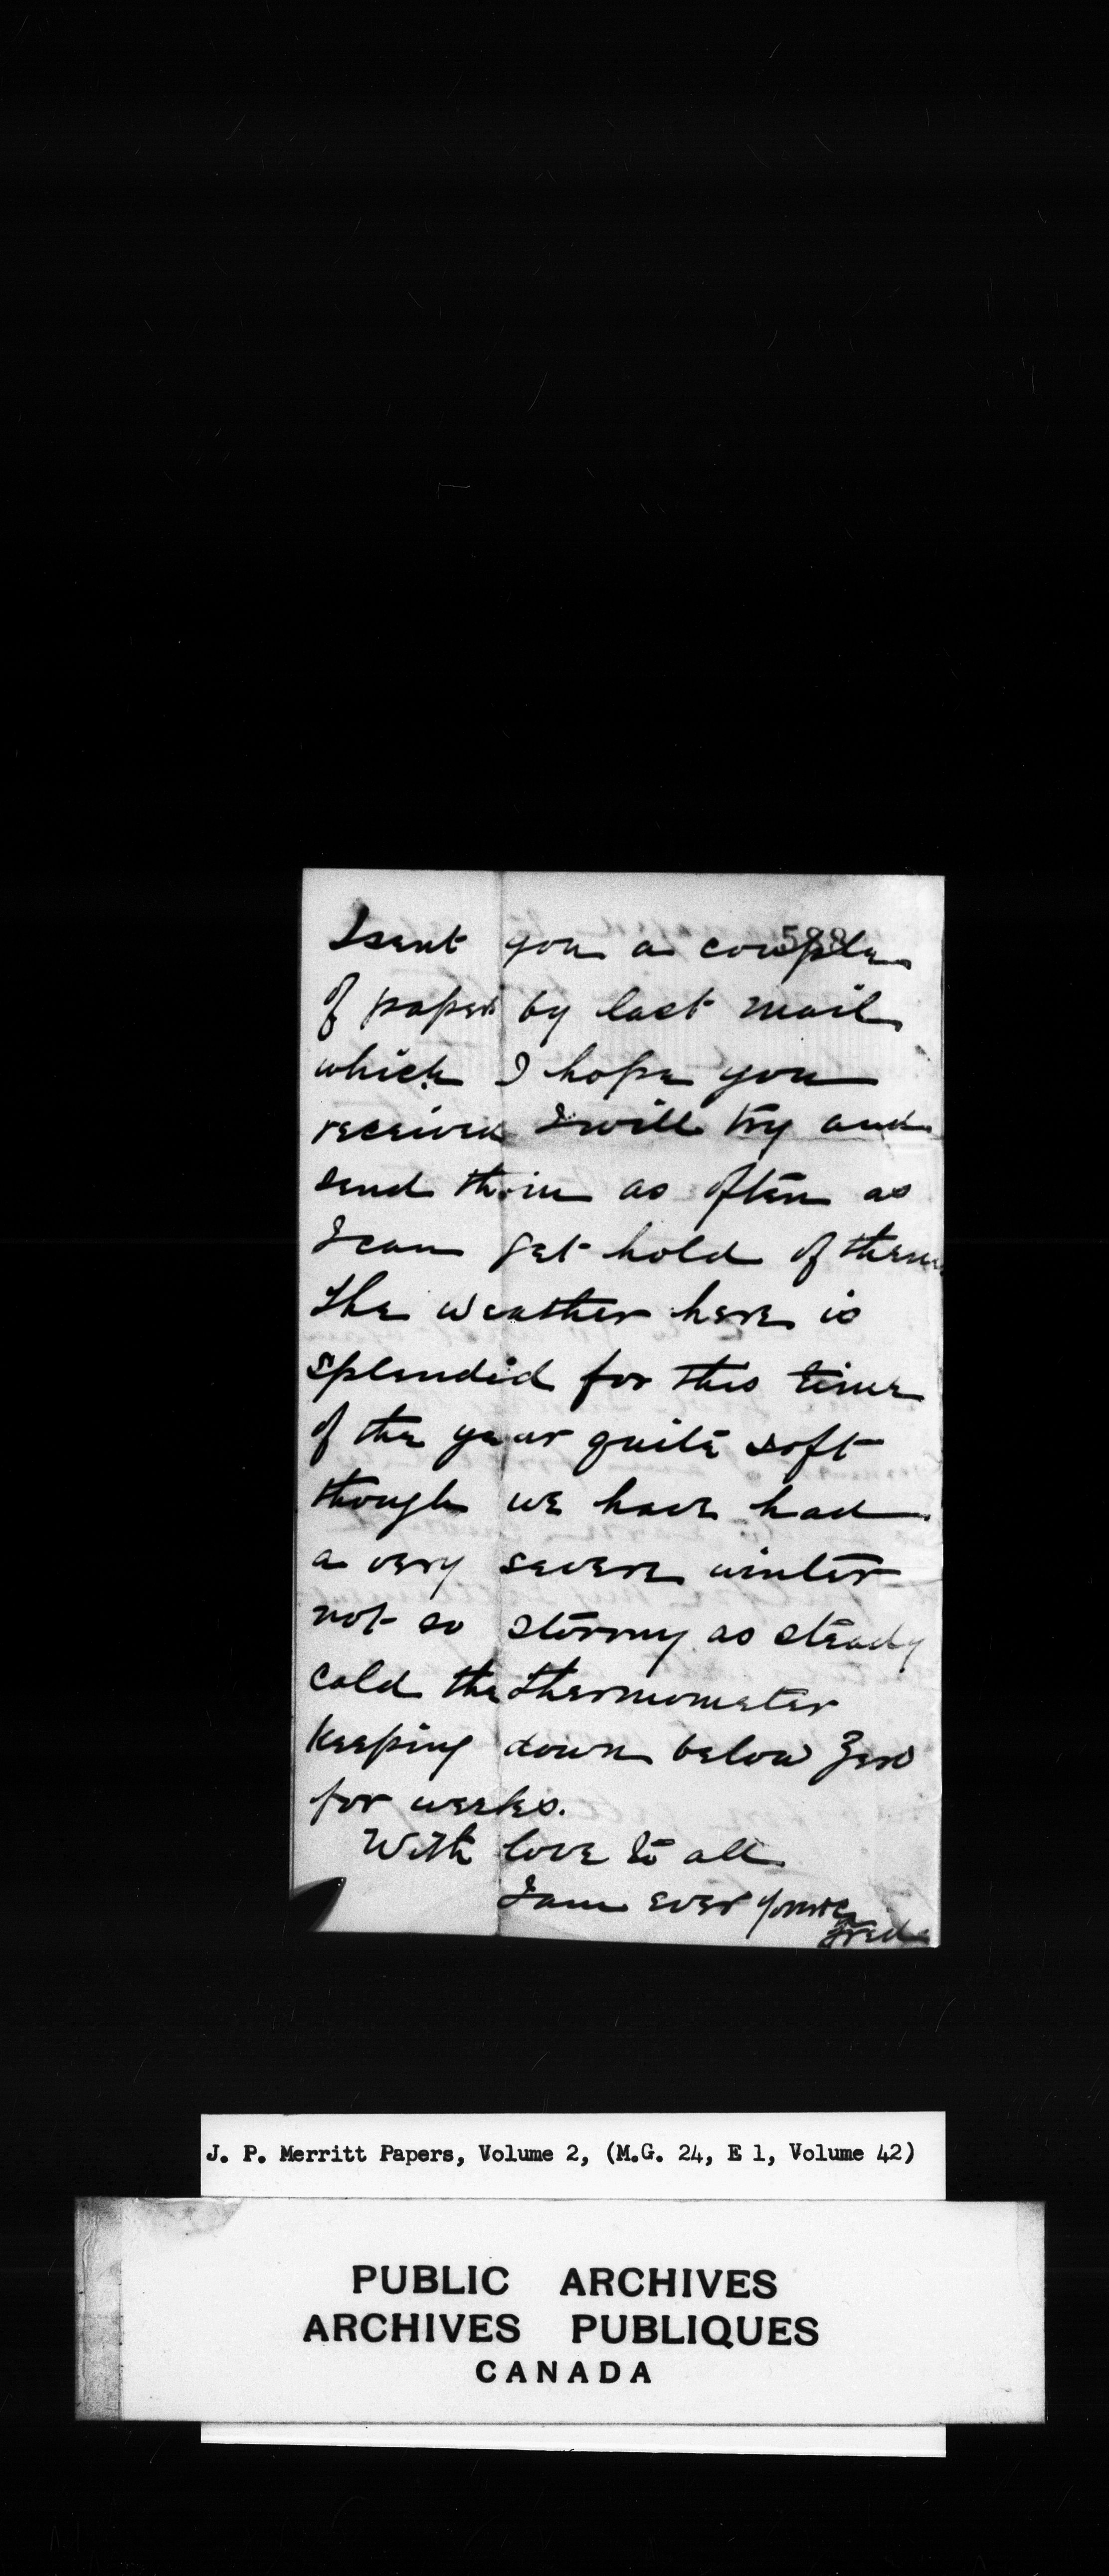 588
I sent you a couple
of papers by last mail
which I hope you
received I will try and
send them as often as
I can get hold of them
the weather here is
splendid for this time
of the year quite soft
though we have had
a very severe winter
not so stormy as steady
cold the thermometer
keeping down below Zero
for weeks.
With love to all
I am ever yours
Fred
J. P. Merritt Papers, Volume 2, (M.G. 24, E 1, Volume 42)
PUBLIC ARCHIVES
ARCHIVES PUBLIQUES
CANADA